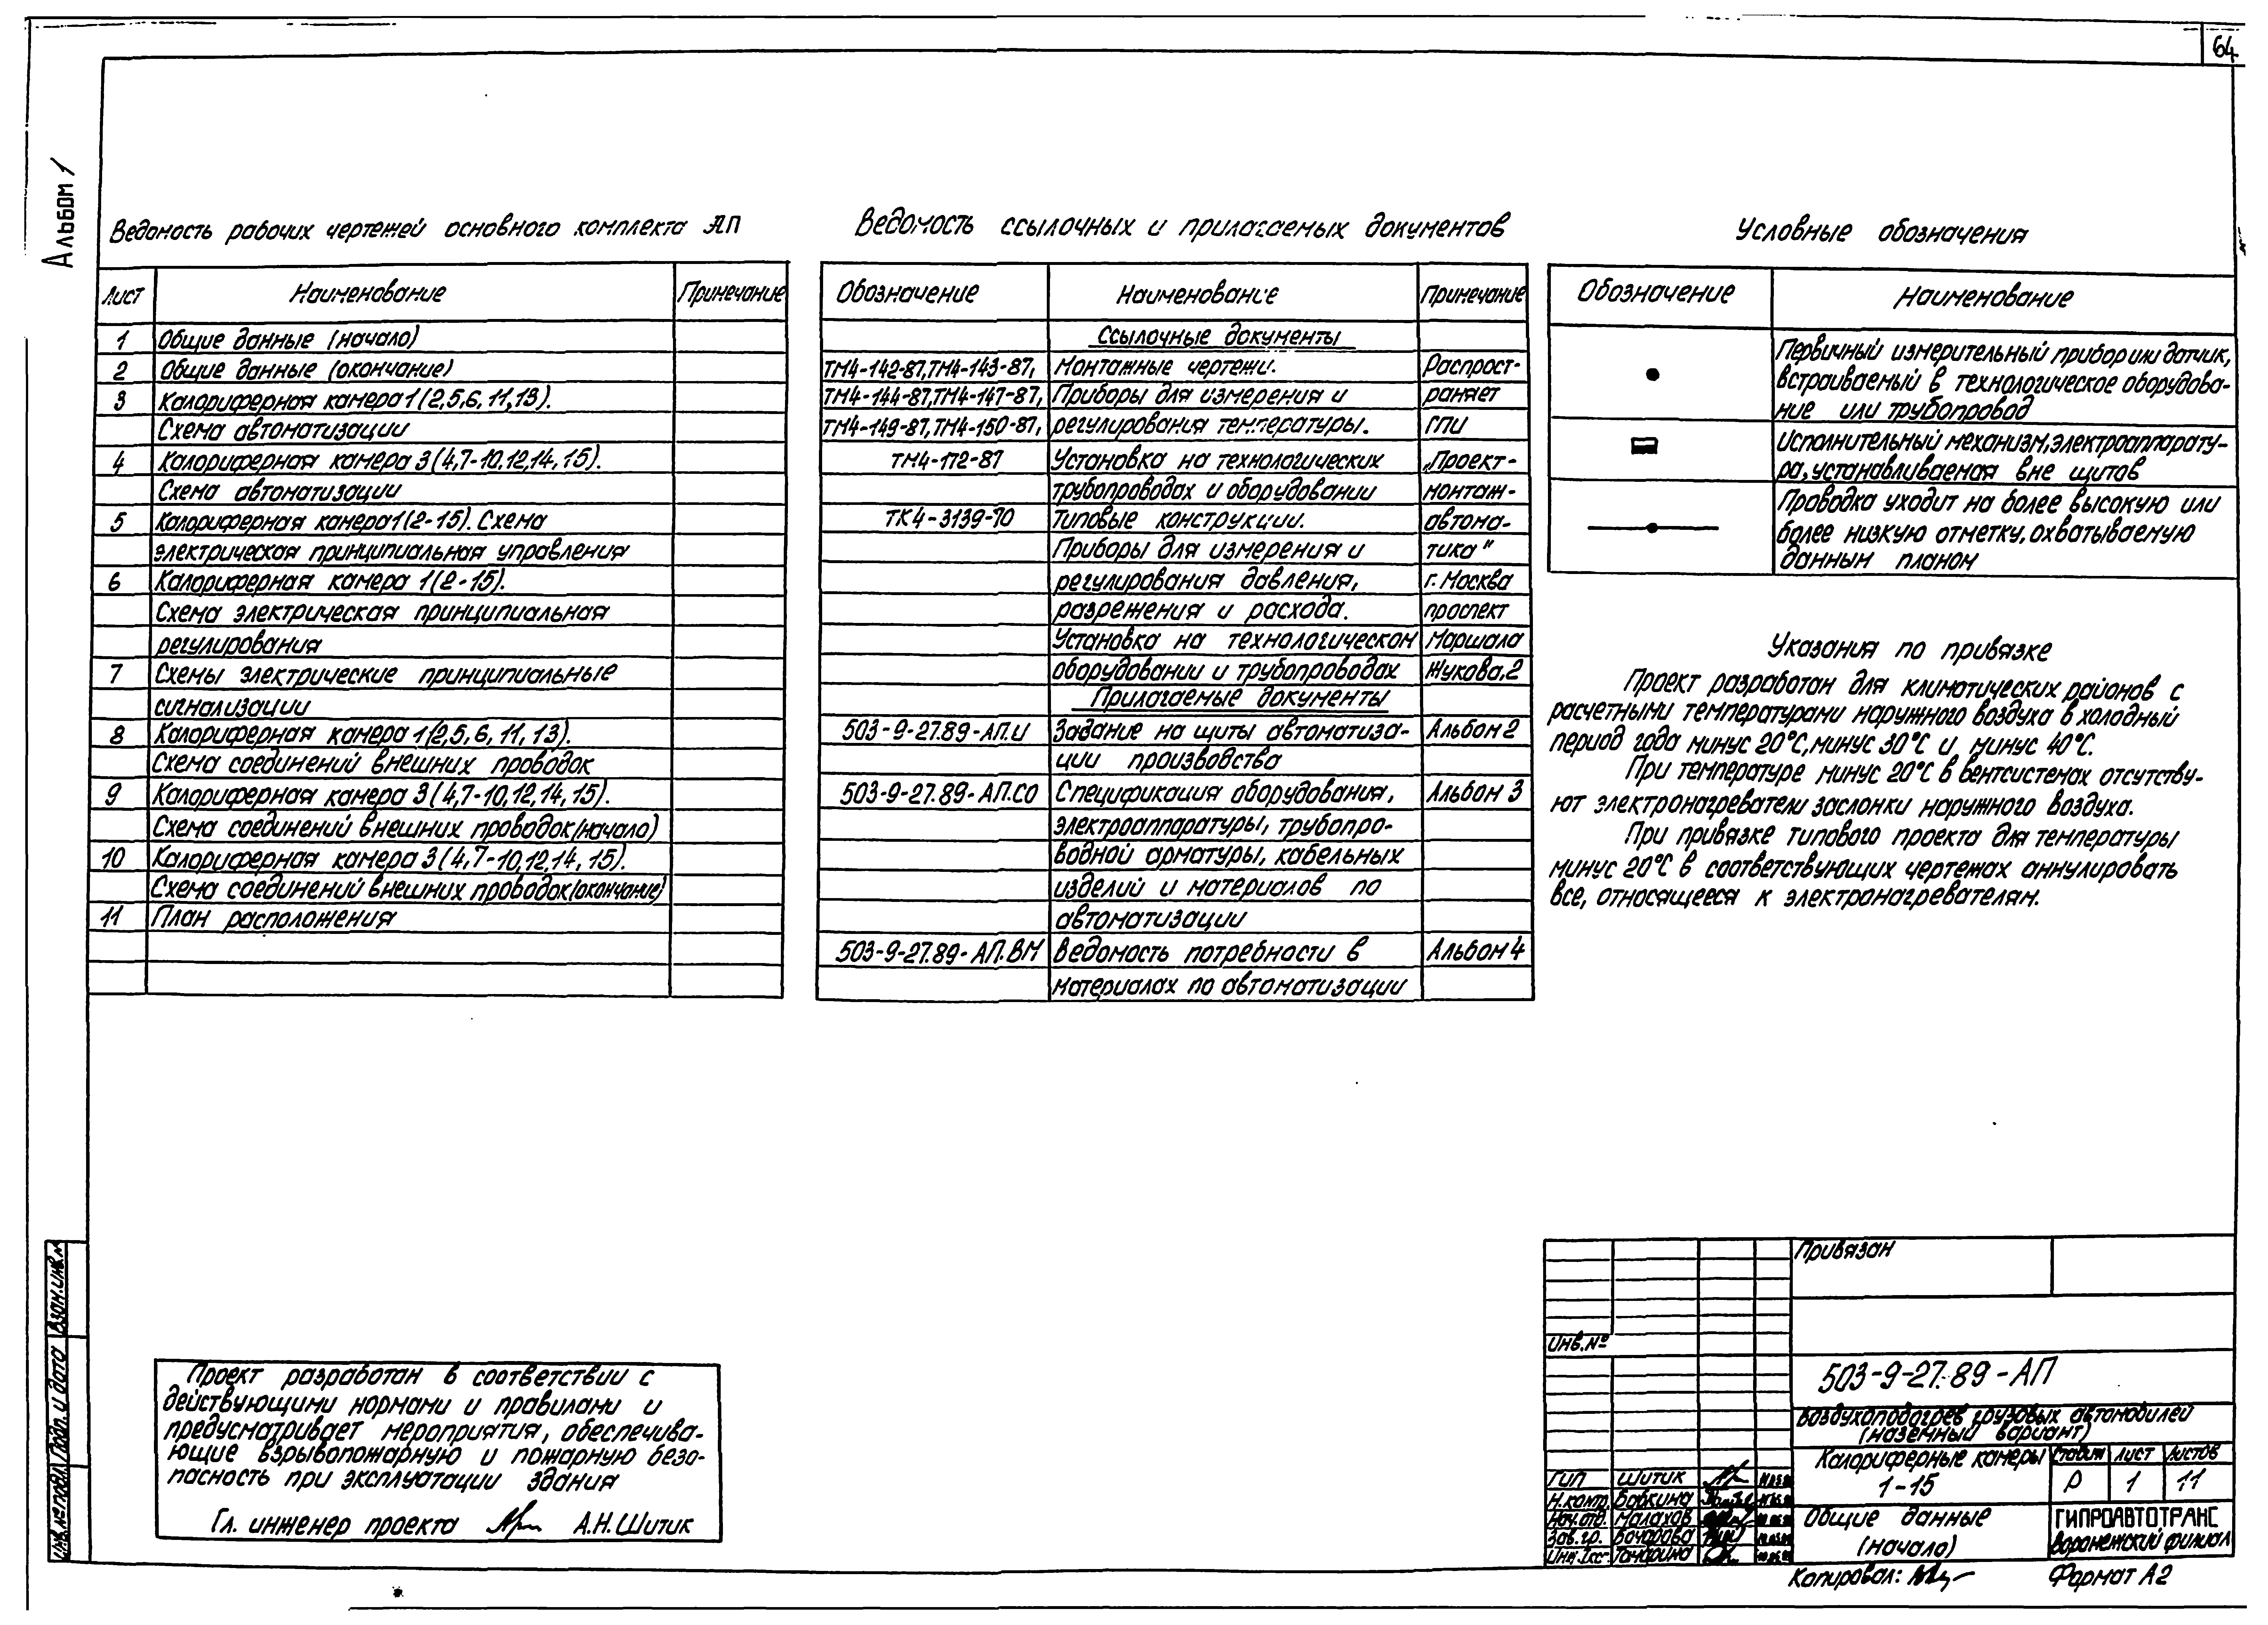 64
Альбом 1
Ведомость рабочих чертежей основного комплекта АП
Лист Наименование Примечание
1 Общие данные (начало)
2 Общие данные (окончание)
3 Калориферная камера 1 (2,5,6,11,13).
Схема автоматизации
4 Калориферная камера 3 (4,7-10,12,14,15).
Схема автоматизации
5 Калориферная камера 1 (2-15). Схема
электрическая принципиальная управления
6 Калориферная камера 1 (2-15).
Схема электрическая принципиальная
регулирования
7 Схемы электрические принципиальные
сигнализации
8 Калориферная камера 1 (2,5,6,11,13).
Схема соединений внешних проводок
9 Калориферная камера 3 (4,7-10,12,14,15).
Схема соединений внешних проводок (начало)
10 Калориферная камера 3 (4,7-10,12,14,15).
Схема соединений внешних проводок (окончание)
11 План расположения
Ведомость ссылочных и прилагаемых документов
Обозначение Наименование Примечание
Ссылочные документы
ТМ4-142-87, ТМ4-143-87, Монтажные чертежи. Распрост-
ТМ4-144-87, ТМ4-147-87, Приборы для измерения и раняет
ТМ4-149-87, ТМ4-150-87, регулирования температуры. ГПИ
ТМ4-172-87 Установка на технологических „Проект-
трубопроводах и оборудовании монтаж-
ТК4-3139-70 Типовые конструкции. автома-
Приборы для измерения и тика"
регулирования давления, г. Москва
разрежения и расхода. проспект
Установка на технологическом Маршала
оборудовании и трубопроводах Жукова,2
Прилагаемые документы
503-9-27.89-АП.И Задание на щиты автоматиза- Альбом 2
ции производства
503-9-27.89-АП.СО Спецификация оборудования, Альбом 3
электроаппаратуры, трубопро-
водной арматуры, кабельных
изделий и материалов по
автоматизации
503-9-27.89-АП.ВМ Ведомость потребности в Альбом 4
материалах по автоматизации
Условные обозначения
Обозначение Наименование
Первичный измерительный прибор или датчик,
встраиваемый в технологическое оборудова-
ние или трубопровод
Исполнительный механизм, электроаппарату-
ра, устанавливаемая вне щитов
Проводка уходит на более высокую или
более низкую отметку, охватываемую
данным планом
Указания по привязке
Проект разработан для климатических районов с
расчетными температурами наружного воздуха в холодный
период года минус 20°С, минус 30°С и минус 40°С.
При температуре минус 20°С в вентсистемах отсутству-
ют электронагреватели заслонки наружного воздуха.
При привязке типового проекта для температуры
минус 20°С в соответствующих чертежах аннулировать
все, относящееся к электронагревателям.
Взам.инв.№
Подп. и дата
Инв.№ подл.
Проект разработан в соответствии с
действующими нормами и правилами и
предусматривает мероприятия, обеспечива-
ющие взрывопожарную и пожарную безо-
пасность при эксплуатации здания
Гл. инженер проекта А.Н.Шитик
Привязан
Инв.№
503-9-27.89-АП
Воздухоподогрев грузовых автомобилей
(наземный вариант)
ГИП Шитик
Н.контр. Бабкина
Нач.отд. Малахов
Зав.гр. Бочарова
Калориферные камеры
1-15
Стадия Лист Листов
Р 1 11
Общие данные
(начало)
ГИПРОАВТОТРАНС
Воронежский филиал
Копировал:
Формат А2